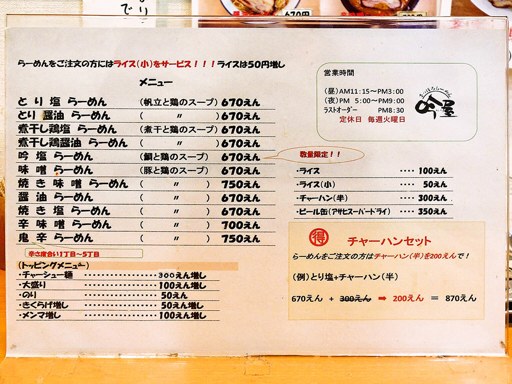 らーめんをご注文の方にはライス(小)をサービス！！！ライスは50円増し
メニュー
とり塩 らーめん (帆立と鶏のスープ) 670えん
とり 醤油 らーめん ( 〃 ) 670えん
煮干し鶏塩 らーめん (煮干と鶏のスープ) 670えん
煮干し鶏醤油 らーめん ( 〃 ) 670えん
吟 塩 らーめん (鯛と鶏のスープ) 670えん
味 噌 らーめん (豚と鶏のスープ) 670えん
焼き 味 噌 らーめん ( 〃 ) 750えん
醤 油 らーめん ( 〃 ) 670えん
焼き 塩 らーめん ( 〃 ) 670えん
辛 味 噌 らーめん ( 〃 ) 700えん
鬼 辛 らーめん ( 〃 ) 750えん
辛さ度合い1丁目〜5丁目
(トッピングメニュー)
・チャーシュー麺 300えん増し
・大盛り 100えん増し
・のり 50えん
・きくらげ増し 50えん増し
・メンマ増し 100えん増し
営業時間
(昼) AM11:15〜PM3:00
(夜) PM 5:00〜PM9:00
ラストオーダー PM8:30
定休日 毎週火曜日
吟屋
数量限定！！
・ライス ‥‥ 100えん
・ライス(小) ‥‥ 50えん
・チャーハン(半) ‥‥ 300えん
・ビール缶(アサヒスーパードライ) ‥‥ 350えん
得 チャーハンセット
らーめんをご注文の方はチャーハン(半)を200えんで！
(例)とり塩+チャーハン(半)
670えん + 300えん ➡ 200えん = 870えん